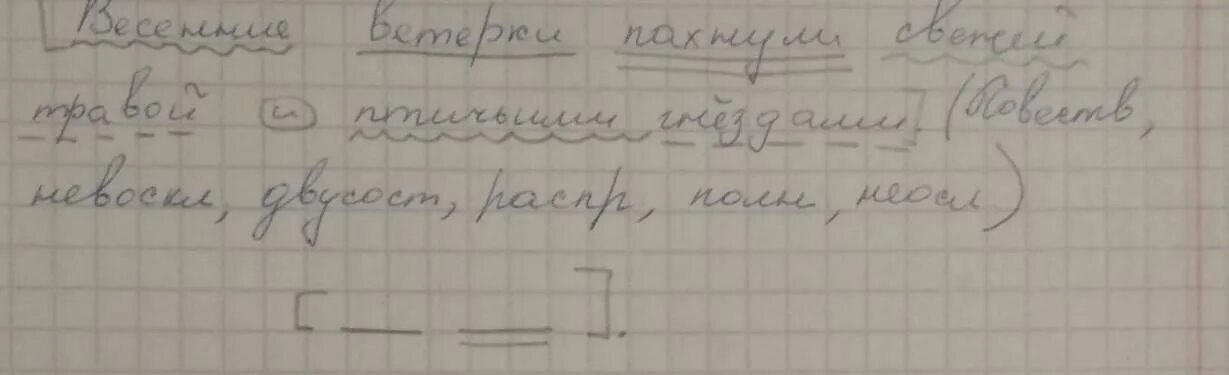 [Весенние ветерки пахнули свежей
травой и птичьими гнёздами]. (Повеств,
невоскл, двусост, распр, полн, неосл)
[ ].